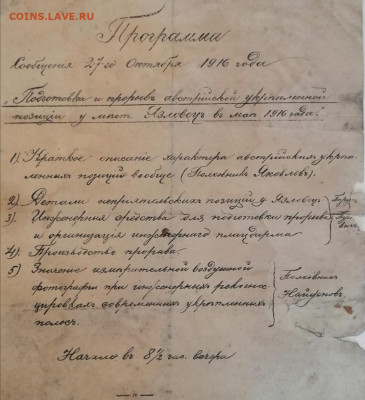 COINS.LAVE.RU
Программа
Сообщения 27-го Октября 1916 года
"Подготовка и прорывъ австрійской укрѣпленной
позиціи у мѣст. Язловецъ въ маѣ 1916 года."
1) Краткое описаніе характера австрійскихъ укрѣп-
ленныхъ позицій вообще (Полковникъ Яковлевъ).
2) Детали непріятельскихъ позицій у Язловца
3). Инженерныя средства для подготовки прорыва
и организація инженернаго плацдарма
4). Производство прорыва.
5) Значеніе измѣрительной воздушной
фотографіи при инженерныхъ рекогнос-
цировкахъ современныхъ укрѣпленныхъ
полосъ.
Полковникъ
Найденовъ.
Начало въ 8 1/2 час. вечера